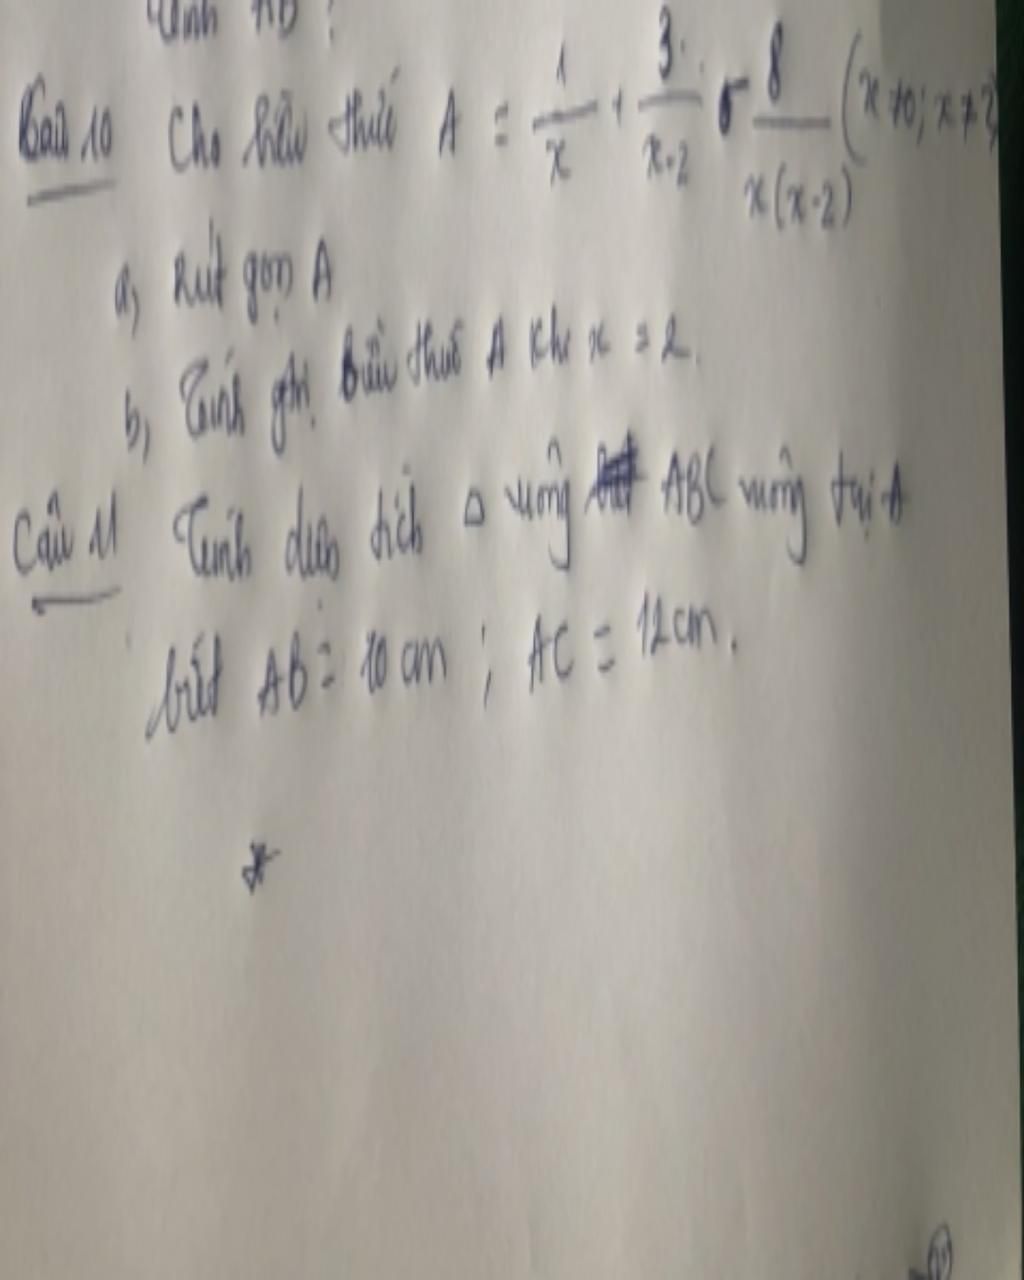 Tính AB ?
Câu 10 Cho biểu thức A = 1/x + 3/(x-2) - 8/(x(x-2)) (x≠0; x≠2)
a, Rút gọn A
b, Tính gtrị biểu thức A khi x = 2.
Câu 11 Tính diện tích Δ vuông ABC vuông tại A
biết AB = 10 cm ; AC = 12 cm.